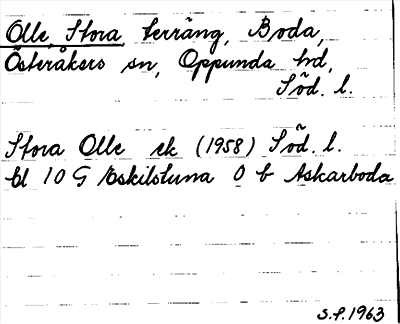 Olle, Stora, terräng, Boda,
Österåkers sn, Oppunda hd,
Söd. l.
Stora Olle ek (1958) Söd. l.
bl 10 G Eskilstuna O b Askarboda
S.P. 1963